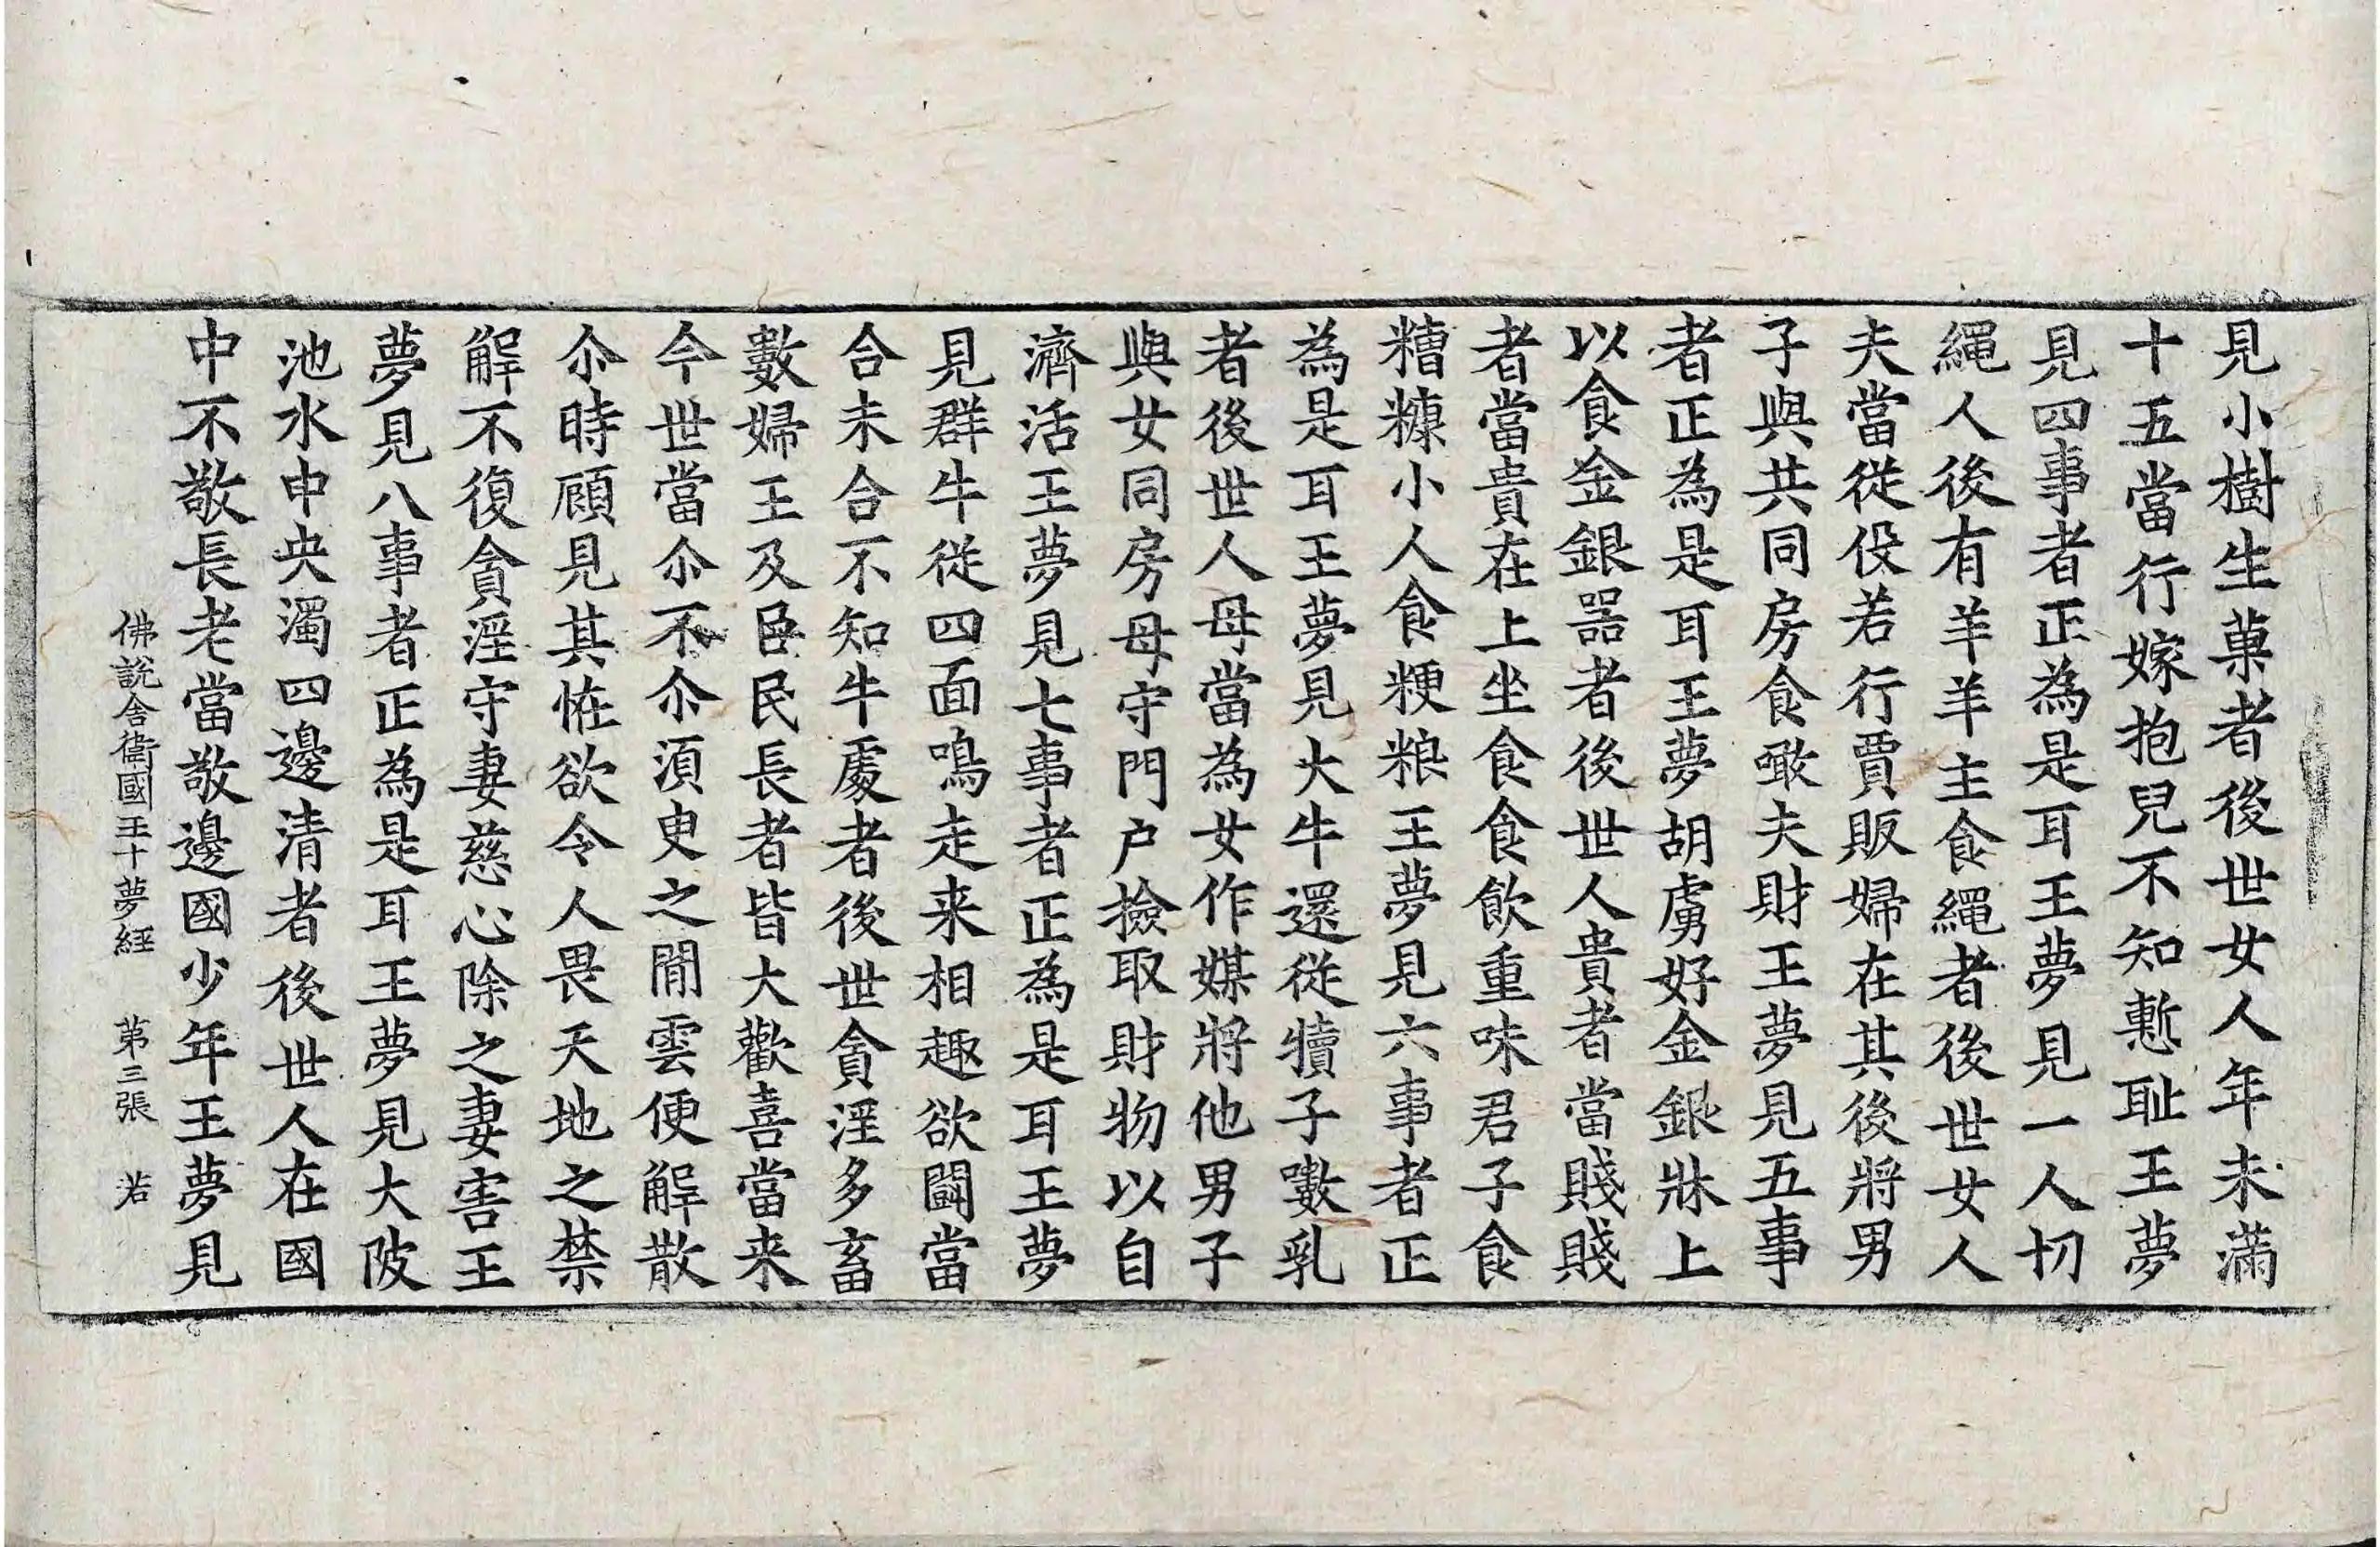 見小樹生菓者後世女人年未滿
十五當行嫁抱兒不知慙耻王夢
見四事者正為是耳王夢見一人切
繩人後有羊羊主食繩者後世女人
夫當從役若行賈販婦在其後將男
子與共同房食噉夫財王夢見五事
者正為是耳王夢胡虜好金銀牀上
以食金銀器者後世人貴者當賤賤
者當貴在上坐食食飲重味君子食
糟糠小人食粳粮王夢見六事者正
為是耳王夢見大牛還從犢子嗽乳
者後世人母當為女作媒將他男子
與女同房母守門户撿取財物以自
濟活王夢見七事者正為是耳王夢
見群牛從四面鳴走来相趣欲鬪當
合未合不知牛處者後世貪淫多畜
數婦王及臣民長者皆大歡喜當来
今世當尒不尒須臾之閒雲便解散
尒時顧見其恠欲令人畏天地之禁
解不復貪淫守妻慈心除之妻害王
夢見八事者正為是耳王夢見大陂
池水中央濁四邊清者後世人在國
中不敬長老當敬邊國少年王夢見
佛說舍衛國王十夢経　第三張　若